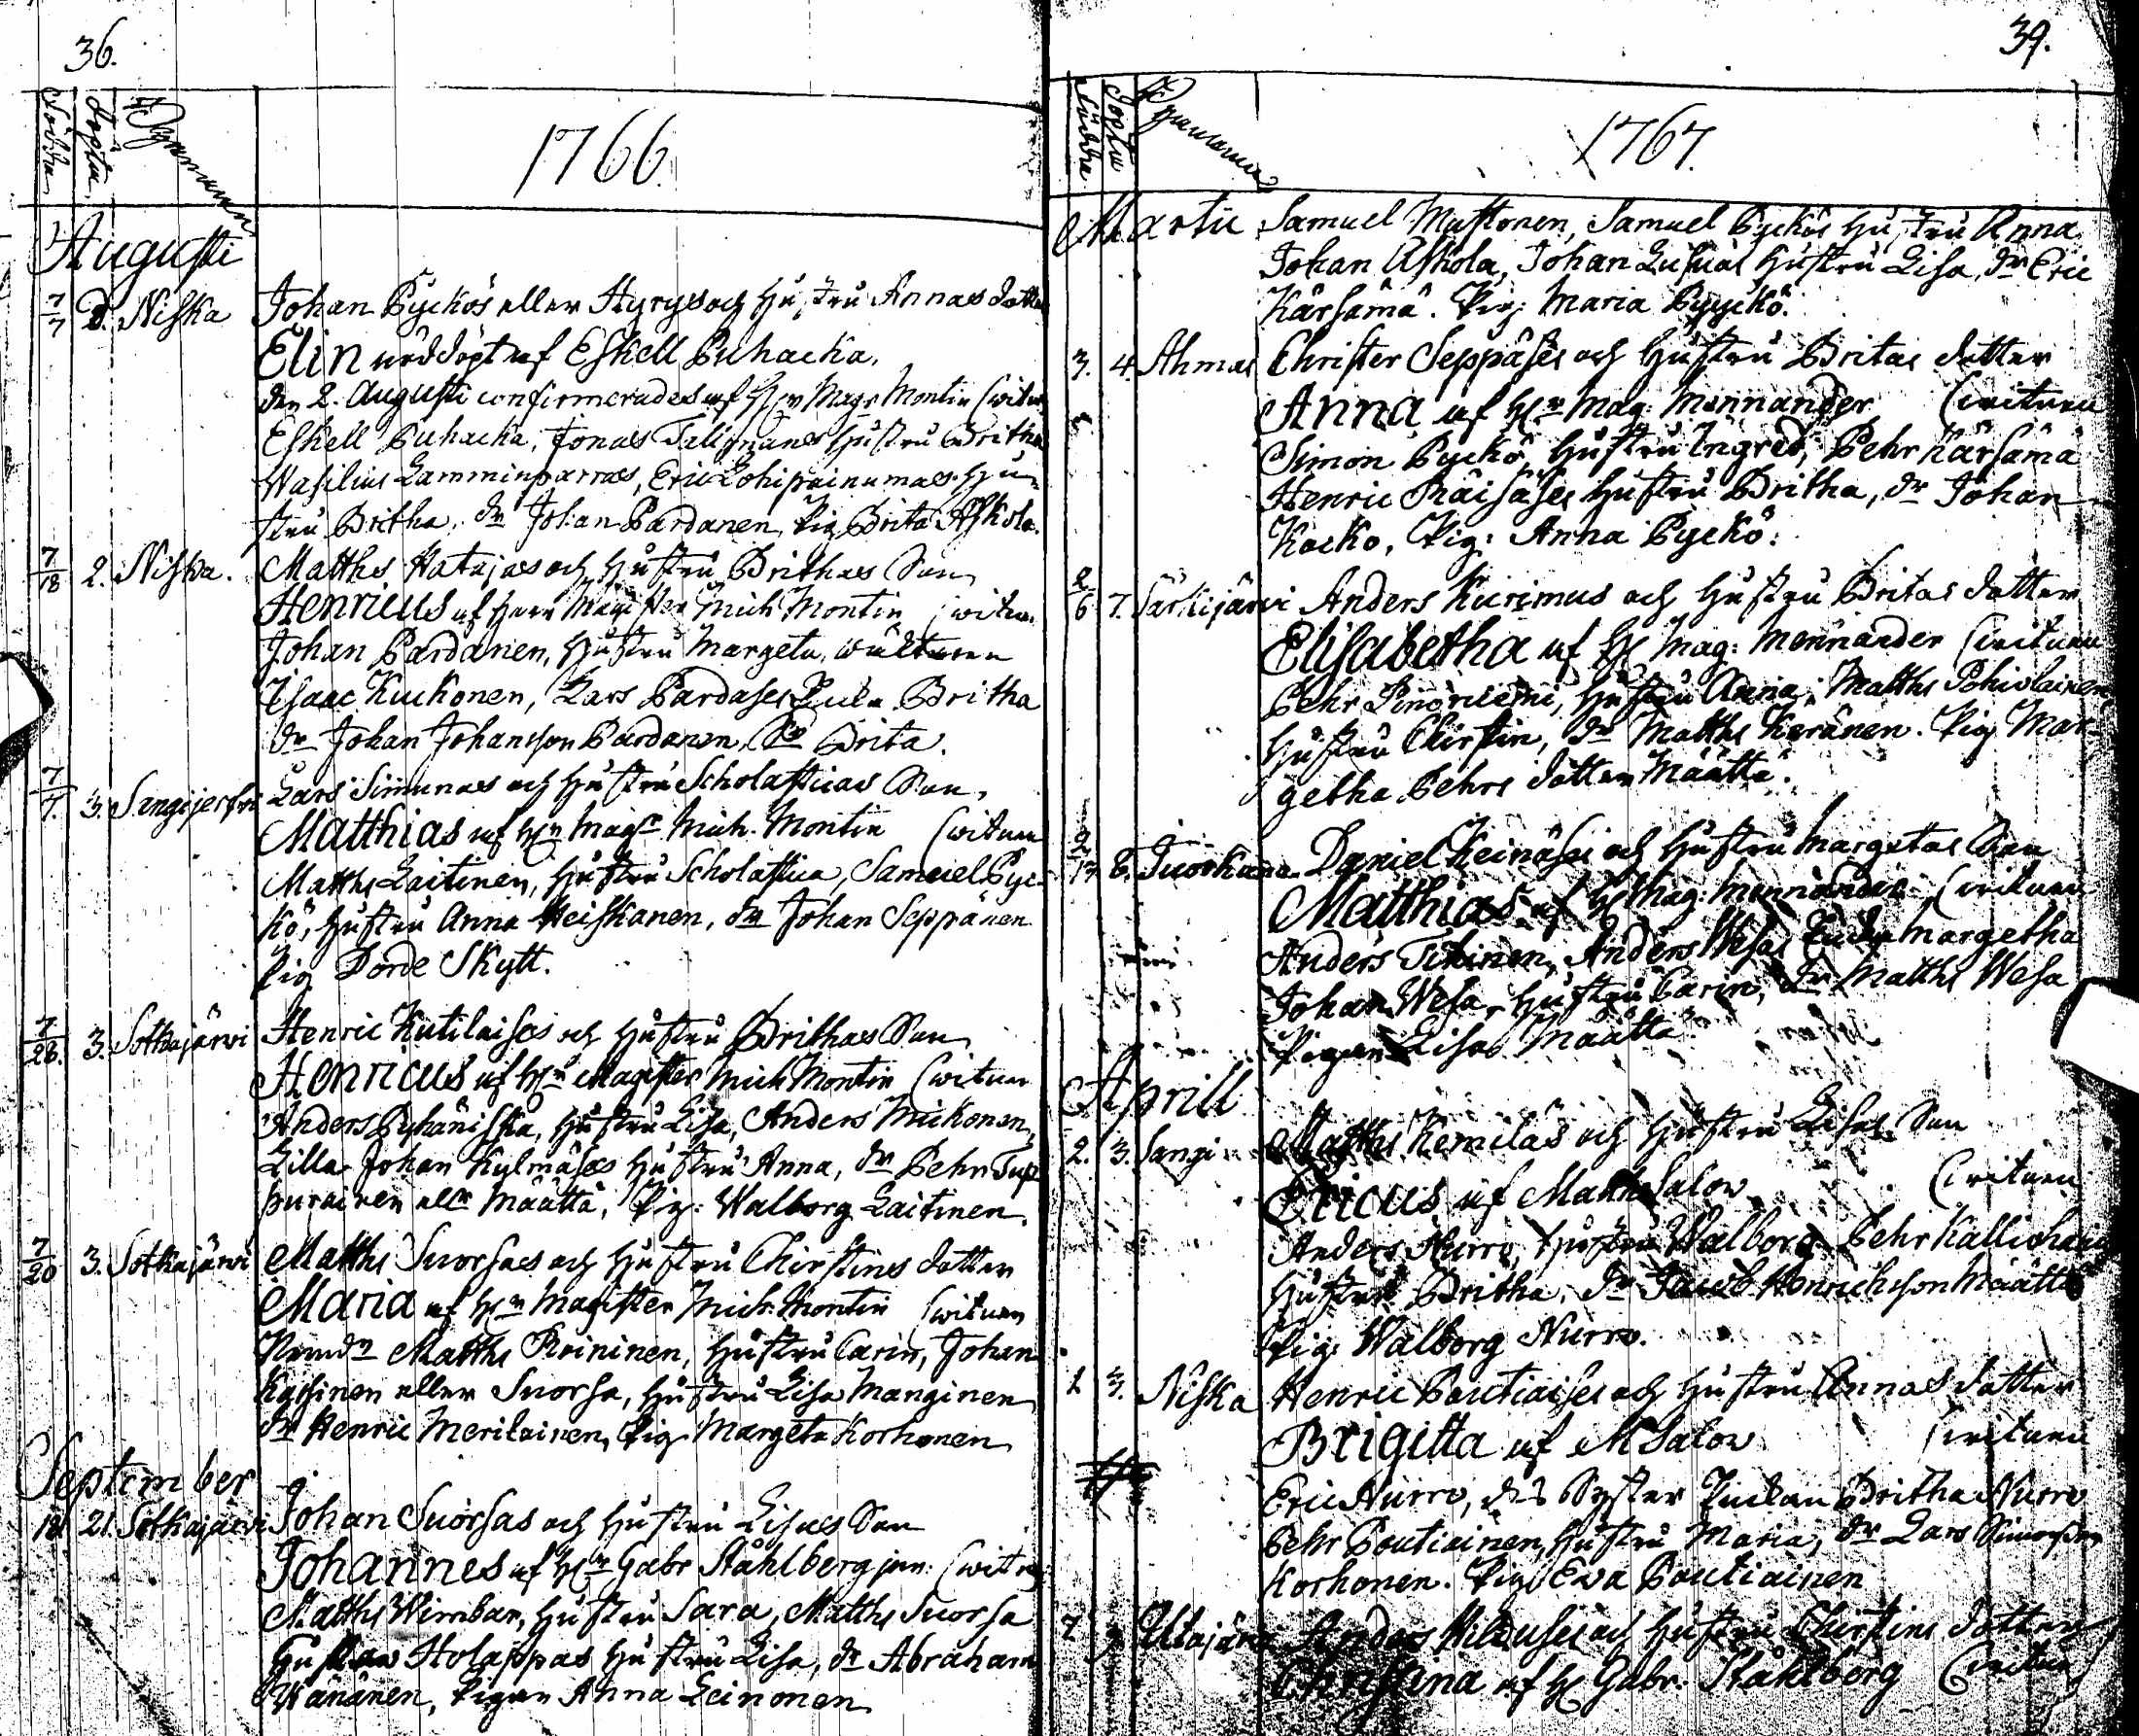 36.
Födda
Döpta
Byarnamn
1766.
Augusti
7/7 d. Niska Johan Pyckös eller Hyrys och Hustru Annas dotter
Elin nöddöpt af Eskell Puhacka.
den 2. Augusti confirmerades af H:rr Mag:r Montin (witn:
Eskell Puhacka, Jonas Hustru Britha
Wasilius Lamminparras, Eric Lohiprinumaes Hu-
stru Britha. dr Johan Pardanen, Pig. Brita Askola.
7/18 2. Niska. Matths Hatajas och Hustru Brithas Son
Henricus af Herr Magister Mich Montin (witn.
Johan Pardanen, Hustru Margeta, wältaren
Isaac Kuckonen, Lars Pardases Enka Britha
dr Johan Johansson Pardanen, Brita.
7/7. 3. Sangijerfvi Lars Simunas och Hustru Scholasticas Son,
Matthias af H:rr Mag:r Mich. Montin (witnen
Matths Laitinen, Hustru Scholastica, Samuel Pyc-
kö, Hustru Anna Heiskanen, dr Johan Seppänen
Pig Dorde Skytt.
7/28. 3. Sotkajärwi Henric Kutilaises och Hustru Brithas Son
Henricus af H:rr Magister Mich Montin (witnen
Anders Pyhäniska, Hustru Lisa, Anders Mickonen,
Lilla Johan Kylmäses Hustru Anna, dr Pehr Tup-
purainen ell:r Määttä, Pig: Walborg Laitinen.
7/20 3. Sotkajärwi Matths Suorsas och Hustru Chirstins dotter
Maria af H:rr Magister Mich: Montin (witnen
Nämd:n Matths Roininen, Hustru Carin, Johan
Kyssinen eller Suorsa, Hustru Lisa Manginen
dr Henric Merilainen, Pig. Margeta Korhonen
September
18. 21. Sotkajärwi Johan Suorsas och Hustru Lisaes Son
Johannes af H:rr Gabr Ståhlberg jun: (witn:
Matths Wimbar, Hustru Sara, Matths Suorsa
Gustaw Holappas Hustru Lisa, dr Abraham
Wänänen, Pigan Anna Leinonen
39.
Födda
Döpta
Byarnamn
1767.
Martii Samuel Mustonen, Samuel Pyckös Hustru Anna
Johan Askola, Johan Hustru Lisa, dr Eric
Kärsämä. Pig: Maria Pyyckö.
3. 4. Ahmas Christer Seppäses och Hustru Britas dotter
Anna af H:rr Mag: Mennander (witnen
Simon Pyckö, Hustru Ingred, Pehr Kärsämä
Henric Räisäses Hustru Britha, dr Johan
Kocko, Pig: Anna Pyckö:
2/6 7. Särkijärvi Anders Kurimus och Hustru Britas dotter
Elisabetha af H: Mag: Mennander (witnen
Pehr Hustru Anna, Matths Pohiolainen
Hustru Chirstin, dr Matths Keränen. Pig Mar-
getha Pehrs dotter Määttä.
2/13 8. Daniel Keinäses och Hustru Margetas Son
Matthias af H: Mag: Mennander (witnen
Anders Tikinen, Anders Wesas Enka Margetha
Johan Wesa, Hustru Carin, dr Matths Wesa
Pigan Lisa Määttä.
Aprill
2. 3. Sangi Matths Kemiläs och Hustru Lisas Son
Ericus af Matths Salow (witnen
Anders Nurro, Hustru Walborg, Pehr
Hustru Britha, dr Jacob Henrichsson Määttä
Pig: Walborg Nurro.
2 3. Niska Henric Poutiaises och Hustru Annas dotter
Brigitta af M Salow (witnen
Eric Nurro, dess Syster Enkan Britha Nurro
Pehr Poutiainen, Hustru Maria, dr Lars Simonson
Korhonen. Pig: Ewa Poutiainen
Utajärvi Anders och Hustru Chirstins dotter
Christina af H: Gabr: Ståhlberg (witnen